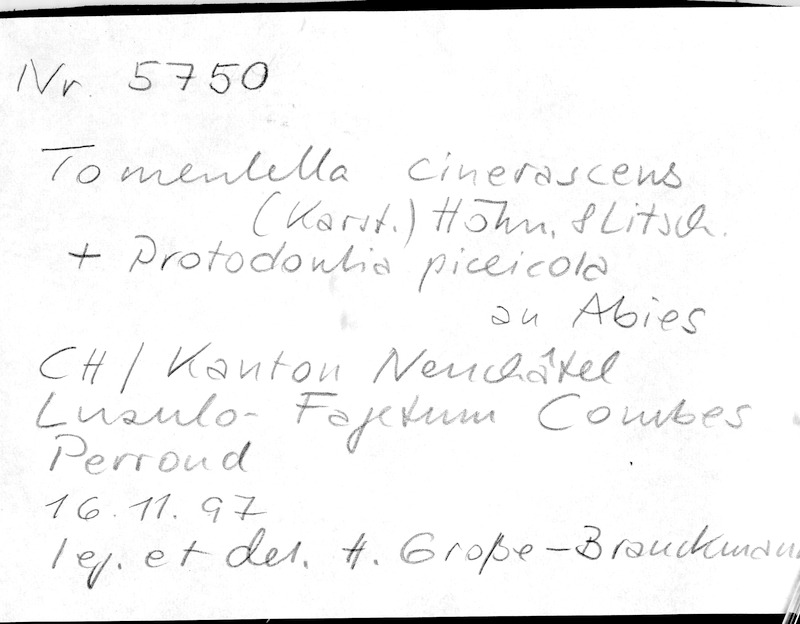 Nr. 5750
Tomentella cinerascens
(Karst.) Höhn. & Litsch.
+ Protodontia piceicola
an Abies
CH / Kanton Neuchâtel
Luzulo-Fagetum Combes
Perroud
16.11.97
leg. et det. H. Große-Brauckmann